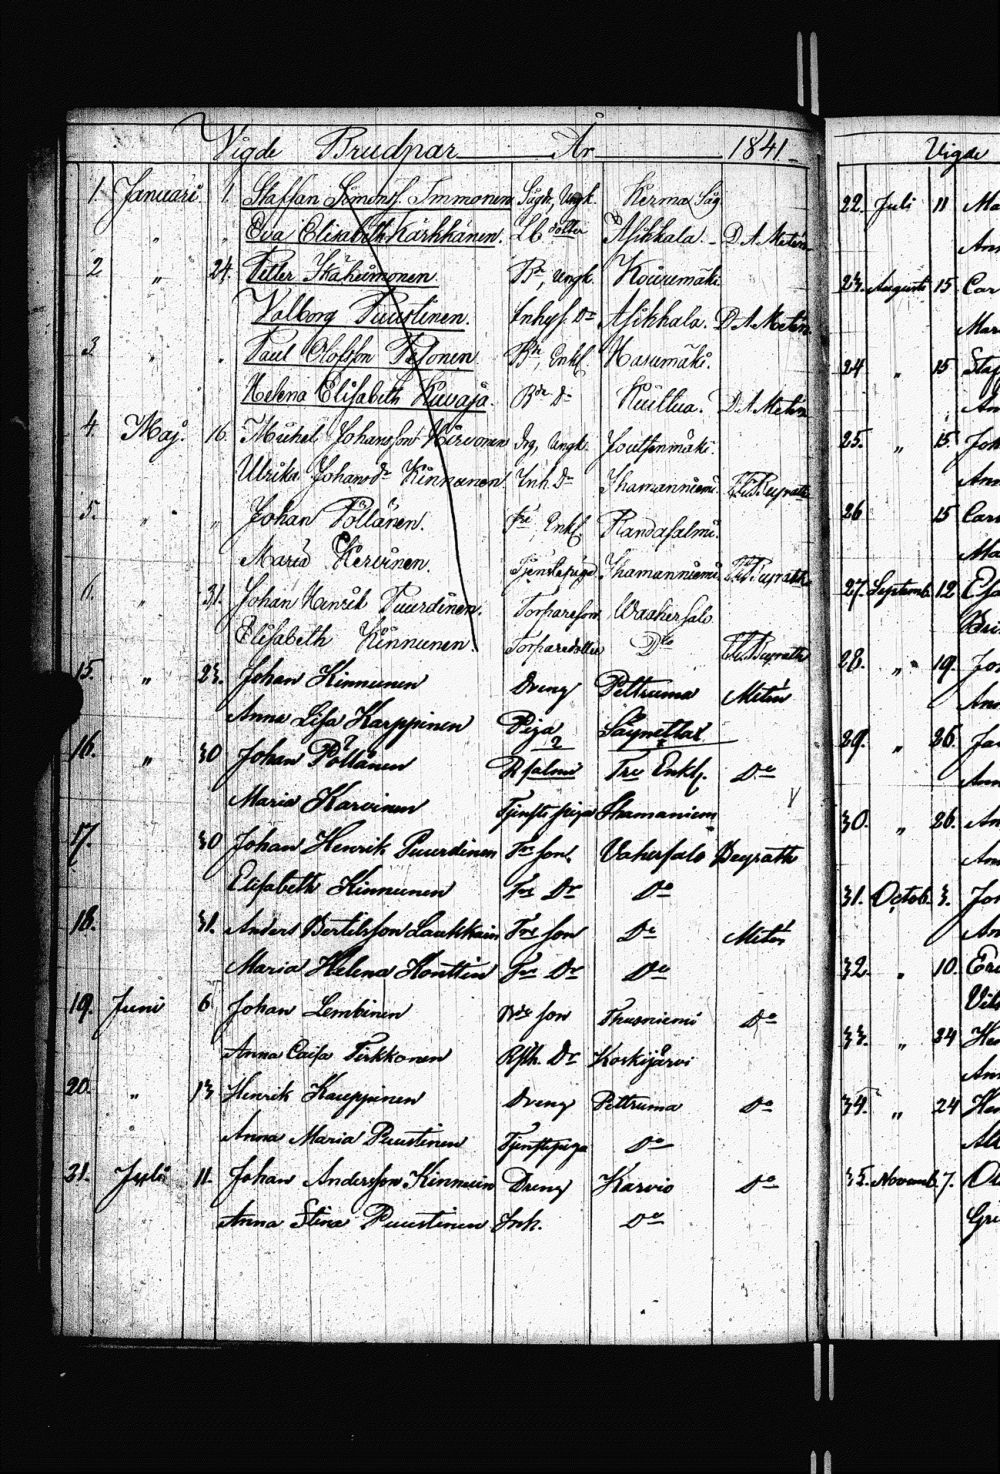 Vigde Brudpar År 1841
1. Januari 1. Staffan Simonss. Immonen Kerma Såg
" " Eva Elisabeth Kärkkänen. Lb dotter Asikkala. D A Metén
2 " 24. Petter Ikäheimonen. Br, Ungk. Kouvumäki
Valborg Puustinen. Inhys. Dr Asikkala. D A Metén
3 " " Paul Olofsson Pesonen Enkl. Hasumäki.
Helena Elisabeth Kuvaja. Bde Dr D A Metén
4. Maj. 16. Michel Johansson Hirvonen Drg, Ungk. Joutsenmäki.
Ulrika Johansdr Kinnunen Inh. Dr Ihamanniemi.
5. " " Johan Pöllänen. Enkl Randasalmi.
Maria Kervinen. Tjenstepiga Ihamanniemi
6. " 31. Johan Henrik Puurdinen. Torpareson Waahersalo
Elisabeth Kinnunen. Torparedotter Do
15. " 23. Johan Kinnunen Dreng Pettruma Metén
Anna Lisa Karppinen Piga Säynettax
16. " 30 Johan Pöllänen R salmi Tre Enkl. Do
Maria Karvinen Tjenste piga Ihamaniem
17. 30 Johan Henrik Puurdinen Tre son. Vahersalo Deyrath
Elisabeth Kinnunen Tre Dr Do
18. 31. Anders Bertilsson Laukkain Tre son Do Metén
Maria Helena Honttin Tre Dr Do
19. Juni 6 Johan Lembinen Bde son Do
Anna Caisa Pirkkonen Dr Koskijärvi
20. " 13 Henrik Kauppinen Dreng Pettruma Do
Anna Maria Puustinen Tjenstepiga Do
21. Juli 11. Johan Andersson Kinnuin Dreng Karvio Do
Anna Stina Puustinen Inh. Do
Vigde
22. Juli 11 Ma
Ann
23. Augusti 15 Car
Mar
24 " 15 Staf
An
25. " 15. Joh
Ann
26 15 Car
Ma
27. Septemb. 12
Bri
28. " 19. Jo
Ann
29. " 26. Ja
Ann
30. " 26. An
Ann
31. Octob. 3. Jo
An
32. " 10. Eri
33. " 24 He
Ann
34. " 24 He
35. Novemb. 7.
Gri